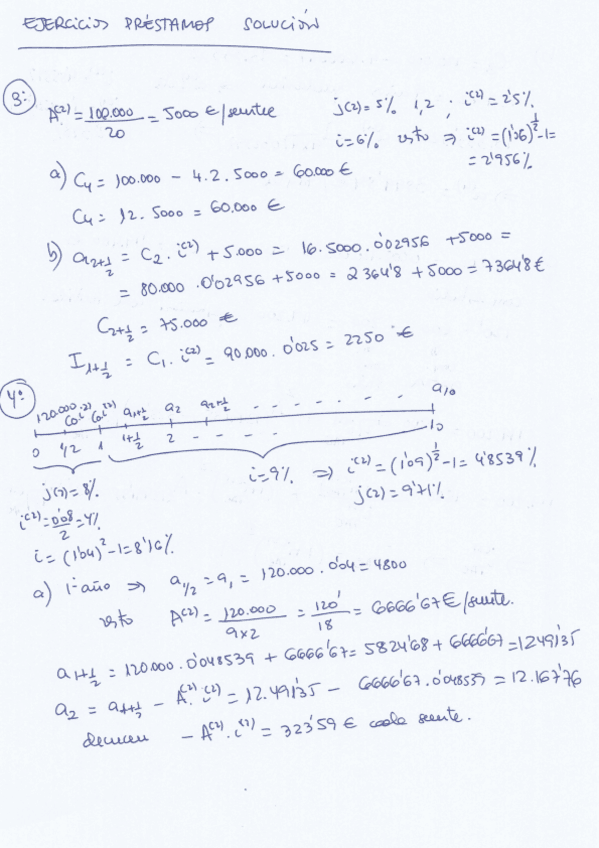 EJERCICIOS PRÉSTAMOS SOLUCIÓN
3:
A⁽²⁾ = 100.000 / 20 = 5000 €/semtre
j(2) = 5% 1,2 ; i⁽²⁾ = 2'5%
i = 6% resto ⇒ i⁽²⁾ = (1'06)^½ - 1 =
= 2'956%
a) C₄ = 100.000 - 4.2.5000 = 60.000 €
C₄ = 12.5000 = 60.000 €
b) a₂₊½ = C₂ . i⁽²⁾ + 5.000 = 16.5000.0'02956 + 5000 =
= 80.000 . 0'02956 + 5000 = 2364'8 + 5000 = 7364'8 €
C₂₊½ = 75.000 €
I₁₊½ = C₁ . i⁽²⁾ = 90.000 . 0'025 = 2250 €
4:
120.000 C₀i⁽²⁾ C₀i⁽²⁾ a₁₊½ a₂ a₂₊½ - - - - - - - a₁₀
0 1/2 1 1+½ 2 - - - - 10
j(2) = 8%
i = 9% ⇒ i⁽²⁾ = (1'09)^½ - 1 = 4'8539%
j(2) = 9'71%
i⁽²⁾ = 0'08 / 2 = 4%
i = (1'04)² - 1 = 8'16%
a) 1er año ⇒ a₁/₂ = a₁ = 120.000 . 0'04 = 4800
resto A⁽²⁾ = 120.000 / 9x2 = 120' / 18 = 6666'67 €/semtre.
a₁₊½ = 120.000 . 0'048539 + 6666'67 = 5824'68 + 6666'67 = 12491'35
a₂ = a₁₊½ - A⁽²⁾ . i⁽²⁾ = 12.491'35 - 6666'67 . 0'048539 = 12.167'76
decrecen - A⁽²⁾ . i⁽²⁾ = 323'59 € cada semtre.